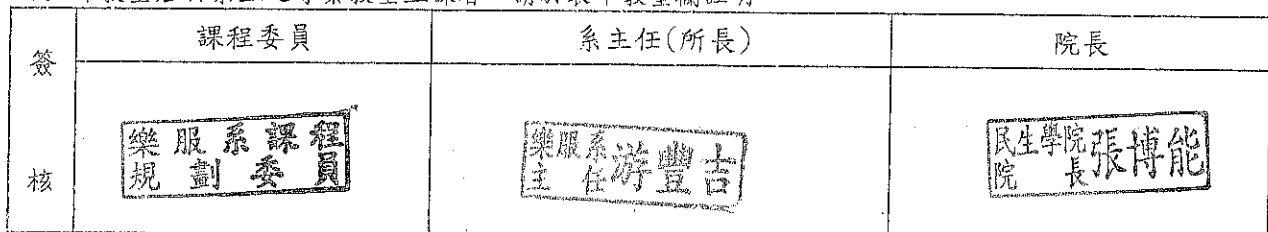 簽核
課程委員
系主任(所長)
院長
樂服系課程
規劃委員
樂服系
主任
游豐吉
民生學院
院長
張博能